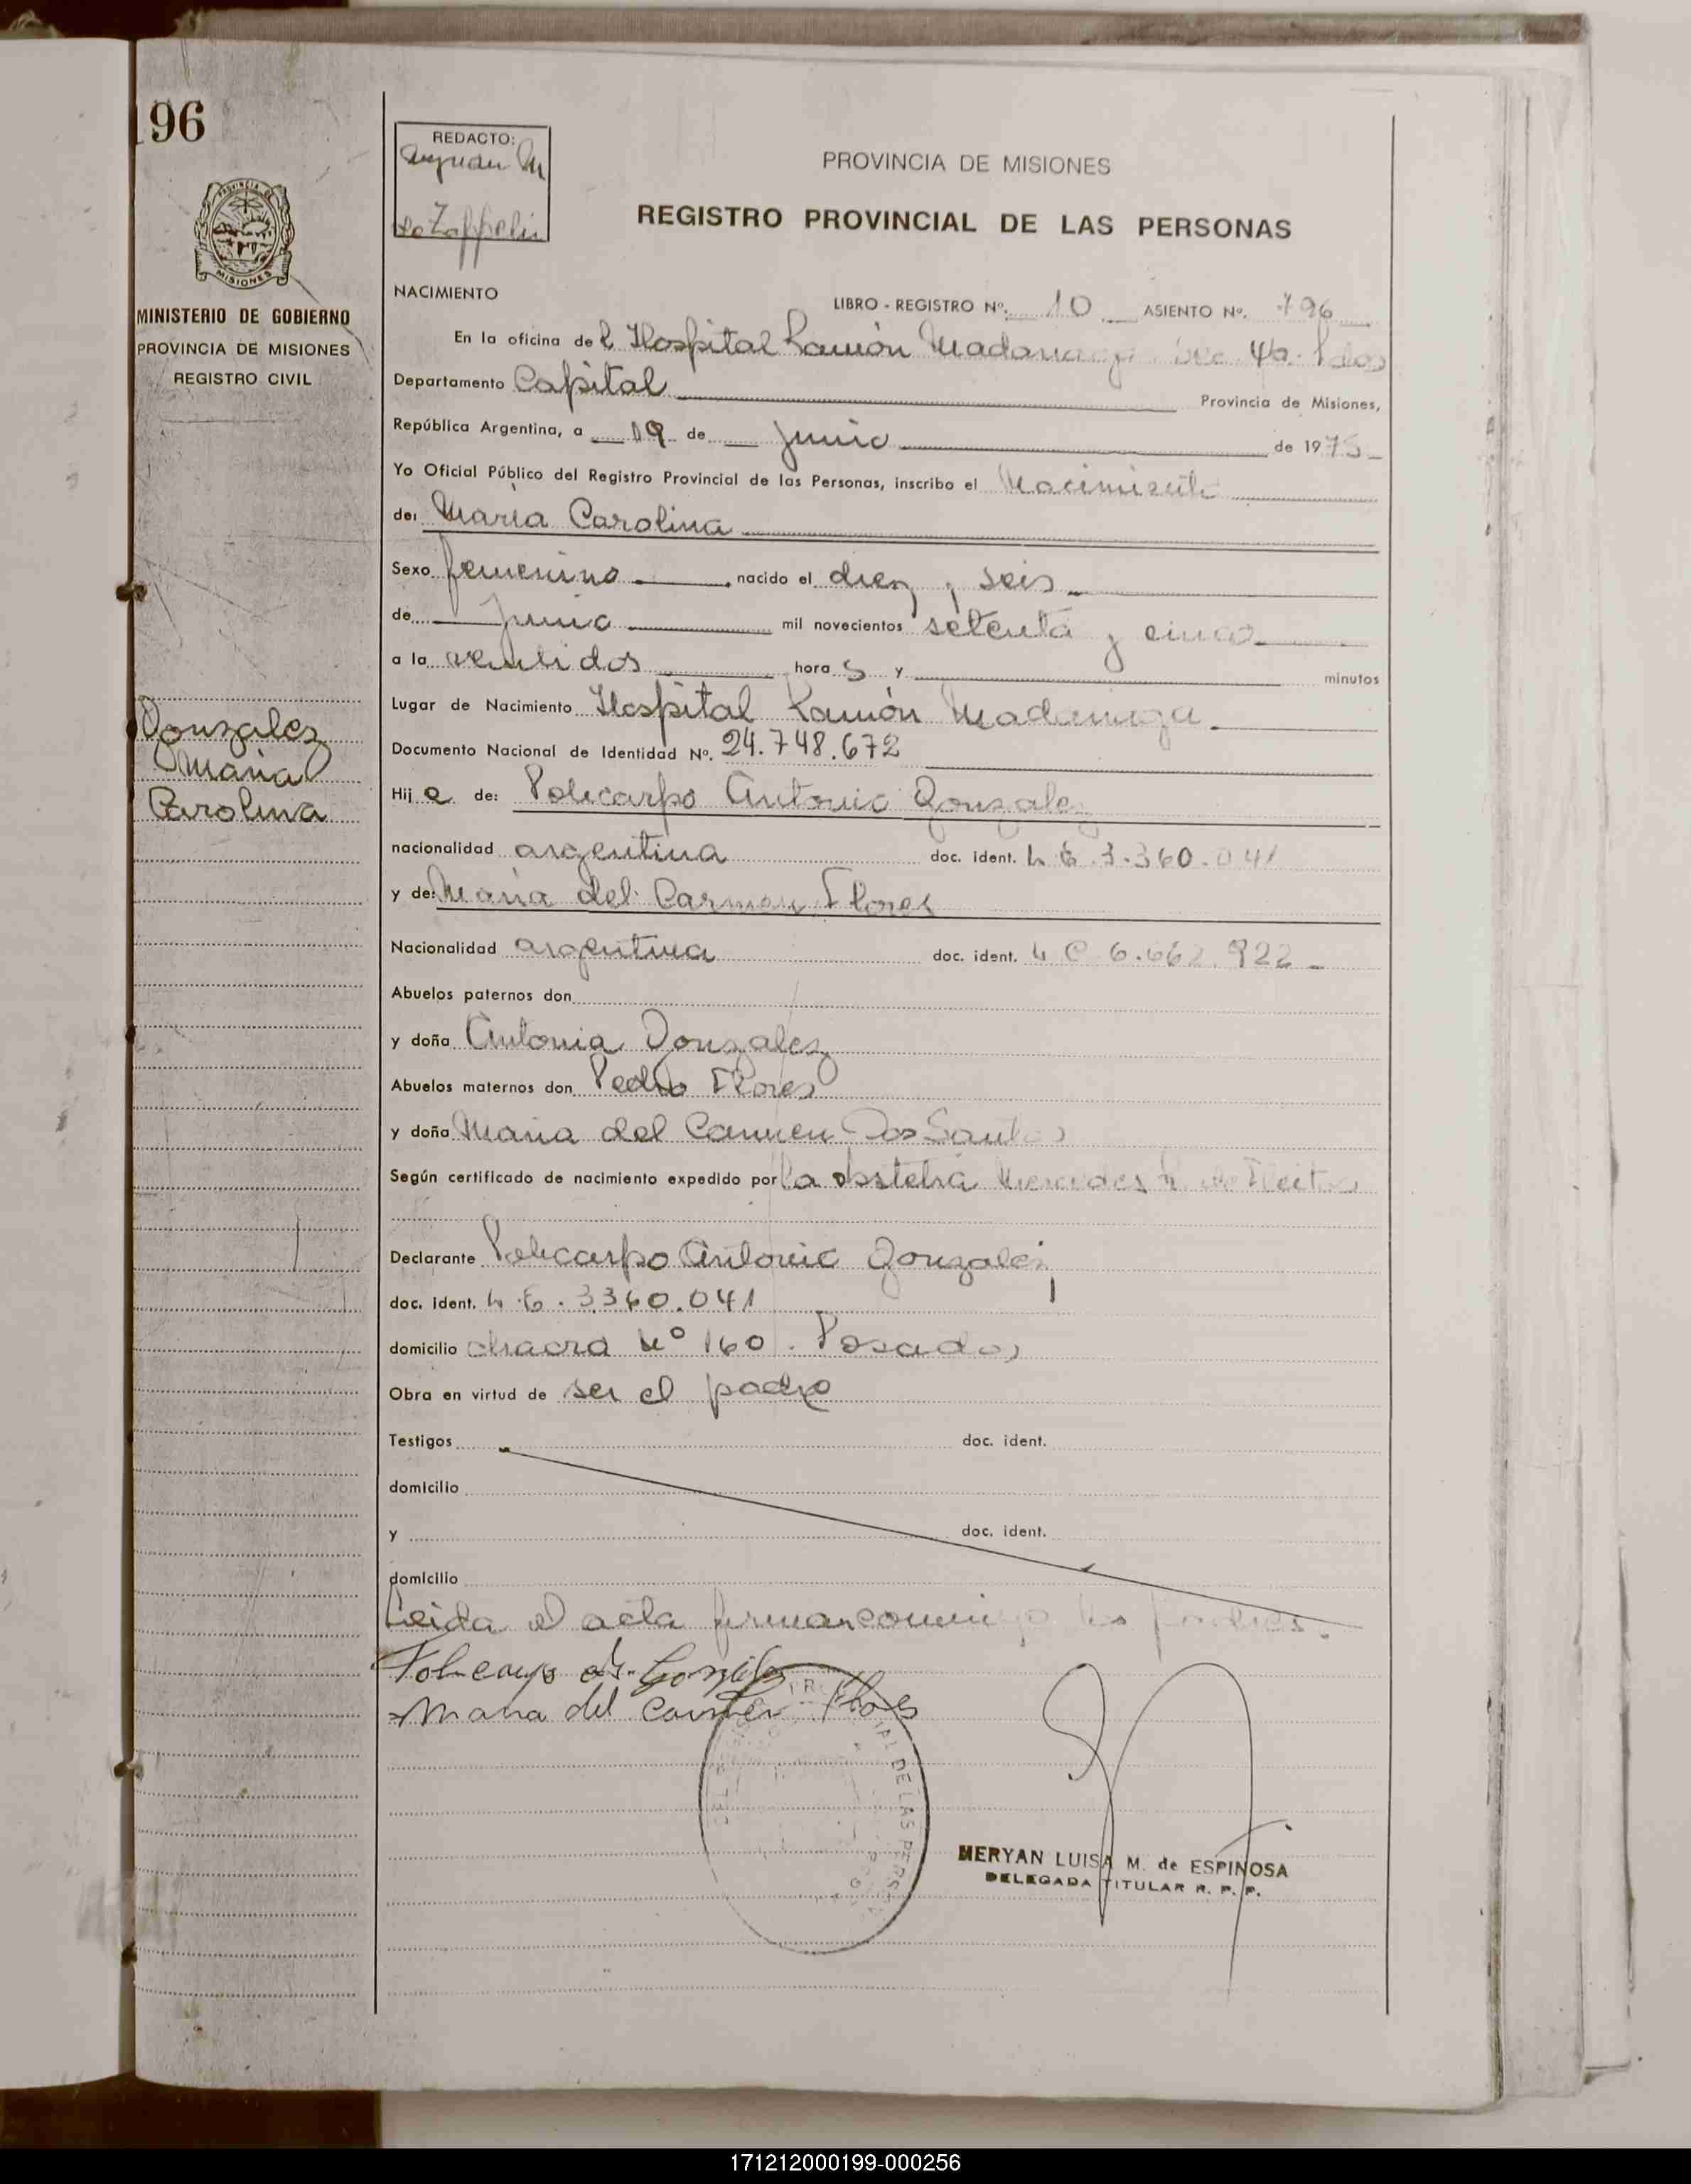 196
REDACTO:
de Zappelini
PROVINCIA DE MISIONES
REGISTRO PROVINCIAL DE LAS PERSONAS
PROVINCIA DE
MISIONES
MINISTERIO DE GOBIERNO
PROVINCIA DE MISIONES
REGISTRO CIVIL
NACIMIENTO
LIBRO - REGISTRO Nº. 10 ASIENTO Nº. 796
En la oficina del Hospital Ramón Madariaga Sec 4a. Pdas
Departamento Capital Provincia de Misiones,
República Argentina, a 19 de Junio de 1975
Yo Oficial Público del Registro Provincial de las Personas, inscribo el Nacimiento
de: María Carolina
Sexo femenino nacido el diez y seis
de Junio mil novecientos setenta y cinco
a la veintidos hora s y minutos
Lugar de Nacimiento Hospital Ramón Madariaga
Gonzalez
Maria
Carolina
Documento Nacional de Identidad Nº. 24.748.672
Hij a de: Policarpo Antonio Gonzalez
nacionalidad argentina doc. ident. L E 3.360.041
y de: Maria del Carmen Flores
Nacionalidad argentina doc. ident. L C 6.662.922
Abuelos paternos don
y doña Antonia Gonzalez
Abuelos maternos don Pedro Flores
y doña Maria del Carmen Dos Santos
Según certificado de nacimiento expedido por la obstetra Mercedes
Declarante Policarpo Antonio Gonzalez
doc. ident. L.E. 3360.041
domicilio chacra Nº 160. Posadas
Obra en virtud de ser el padre
Testigos doc. ident.
domicilio
y doc. ident.
domicilio
Leida el acta firman conmigo los padres.
Policarpo A. Gonzalez
Maria del Carmen Flores
PROVINCIAL DE LAS PERSONAS
MERYAN LUISA M. de ESPINOSA
DELEGADA TITULAR R. P. P.
171212000199-000256